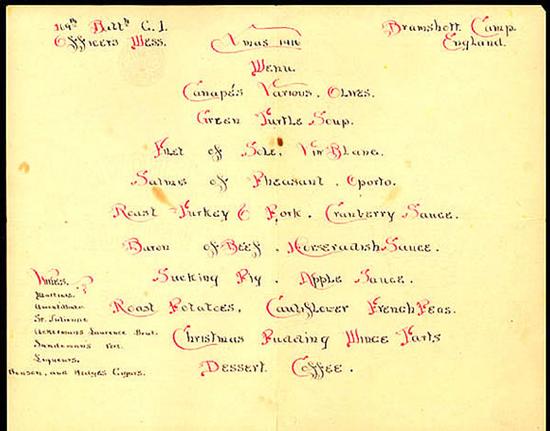 Batt'n C. I.
Officers Mess.
Bramshott Camp.
England.
Xmas 1916
Menu.
Canapés Various. Olives.
Green Turtle Soup.
Filet of Sole. Vin Blanc.
Salmis of Pheasant. Oporto.
Roast Turkey & Pork. Cranberry Sauce.
Baron of Beef. Horseradish Sauce.
Sucking Pig. Apple Sauce.
Roast Potatoes. Cauliflower French Peas.
Christmas Pudding Mince Tarts
Dessert Coffee.
Wines.
Martinis.
Amontillado
St. Julienne
Ackermans Laurence Brut.
Sandemans Port.
Liqueurs.
Benson, and Hedges Cigars.